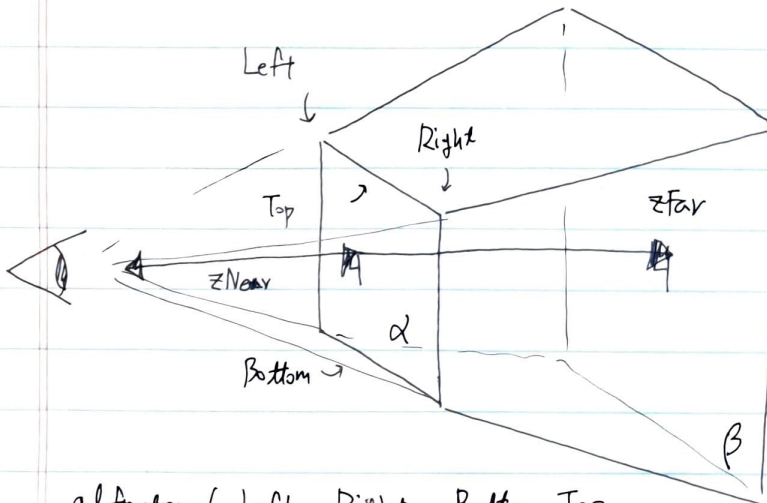 Left
Right
Top
zFar
zNear
α
Bottom
β
glFrustum ( Left, Right, Bottom, Top